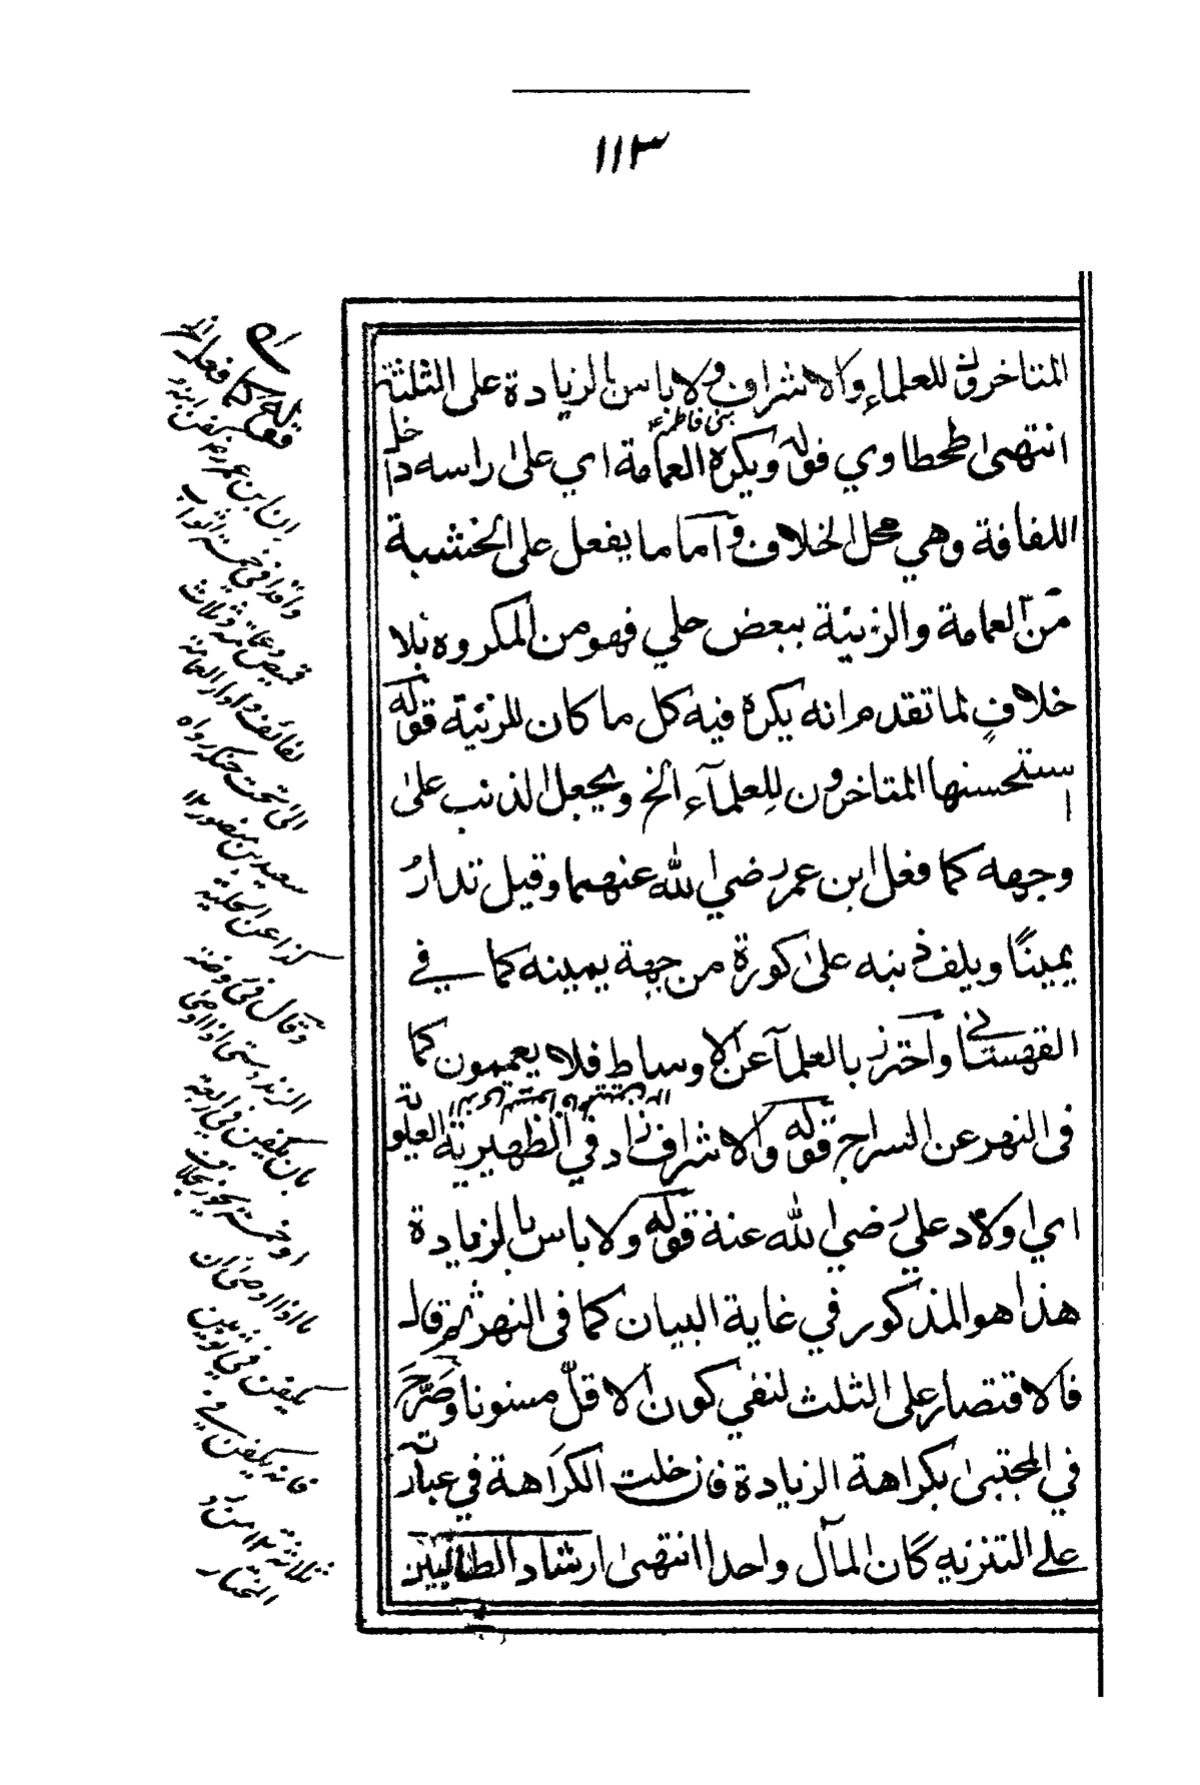 ١١٣
المتاخرون للعلماء والاشراف ولا باس بالزيادة على الثلثة
بنى فاطمة
انتهى طحطاوي قوله ويكره العمامة اي على راسه داخل
اللفافة وهي محل الخلاف وآما ما يفعل على الخشبة
من العمامة والزينة ببعض حلي فهو من المكروه بلا
خلاف لما تقدم انه يكره فيه كل ما كان للزينة قوله
استحسنها المتاخرون للعلمآء الخ ويجعل الذنب على
وجهه كما فعل ابن عمر رضي الله عنهما وقيل تدار
يمينًا ويلف ذنبه على كورة من جهة يمينه كما في
القهستاني واحترز بالعلمآ عن الاوساط فلا يعممون كما
في النهر عن السراج قوله والاشراف زاد في الظهيرية العلوية
اي اولاد علي رضي الله عنه قوله ولا باس بالزيادة
هذا هو المذكور في غاية البيان كما في النهر ثم قال
فالاقتصار على الثلث لنفي كون الاقلّ مسنونا وصَرَّحَ
في المجتبى بكراهة الزيادة فان حملت الكراهة في عبارته
على التنزيه كان المآل واحدا انتهى ارشاد الطالبين
قوله كما فعل ابن
ابن عمر كفن ابنه
واقدا في خمسة اثواب
قميص وعمامة وثلاث
لفائف وادار العمامة
الى تحت حنكه رواه
سعيد بن منصور ١٢
كذا عن الحلية
وقال في روضة
الزندوستي اذا اوصى
بان يكفن في اربعة
او خمسة يجوز بخلاف
ما اذا اوصى ان
يكفن في ثوبين
فانه يكفن في
ثلاثة ١٢ من رد
المحتار